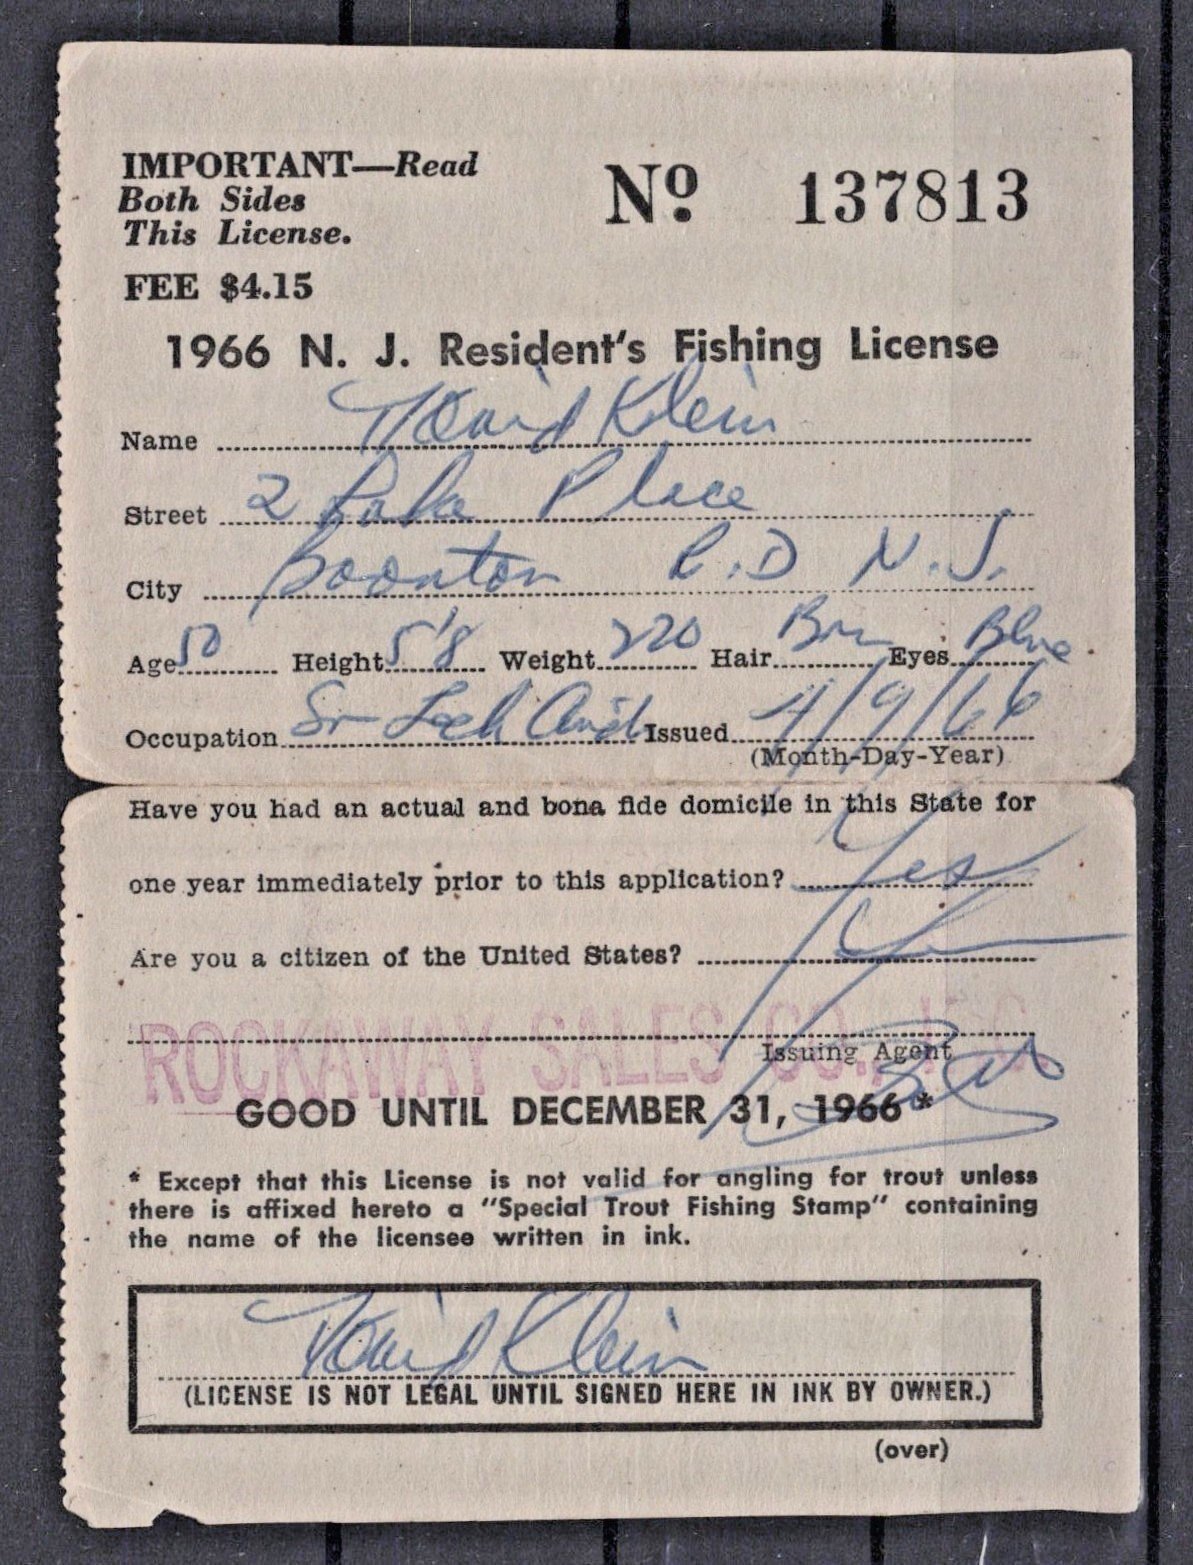 IMPORTANT—Read
Both Sides
This License.
Nº 137813
FEE $4.15
1966 N. J. Resident's Fishing License
Name David Klein
Street 2 Lake Place
City Boonton R.D N.J.
Age 50 Height 5'8 Weight 220 Hair Brn Eyes Blue
Occupation Sr Issued 4/9/66
(Month-Day-Year)
Have you had an actual and bona fide domicile in this State for
one year immediately prior to this application? Yes
Are you a citizen of the United States?
ROCKAWAY SALES CO.
Issuing Agent
GOOD UNTIL DECEMBER 31, 1966*
* Except that this License is not valid for angling for trout unless
there is affixed hereto a "Special Trout Fishing Stamp" containing
the name of the licensee written in ink.
David Klein
(LICENSE IS NOT LEGAL UNTIL SIGNED HERE IN INK BY OWNER.)
(over)